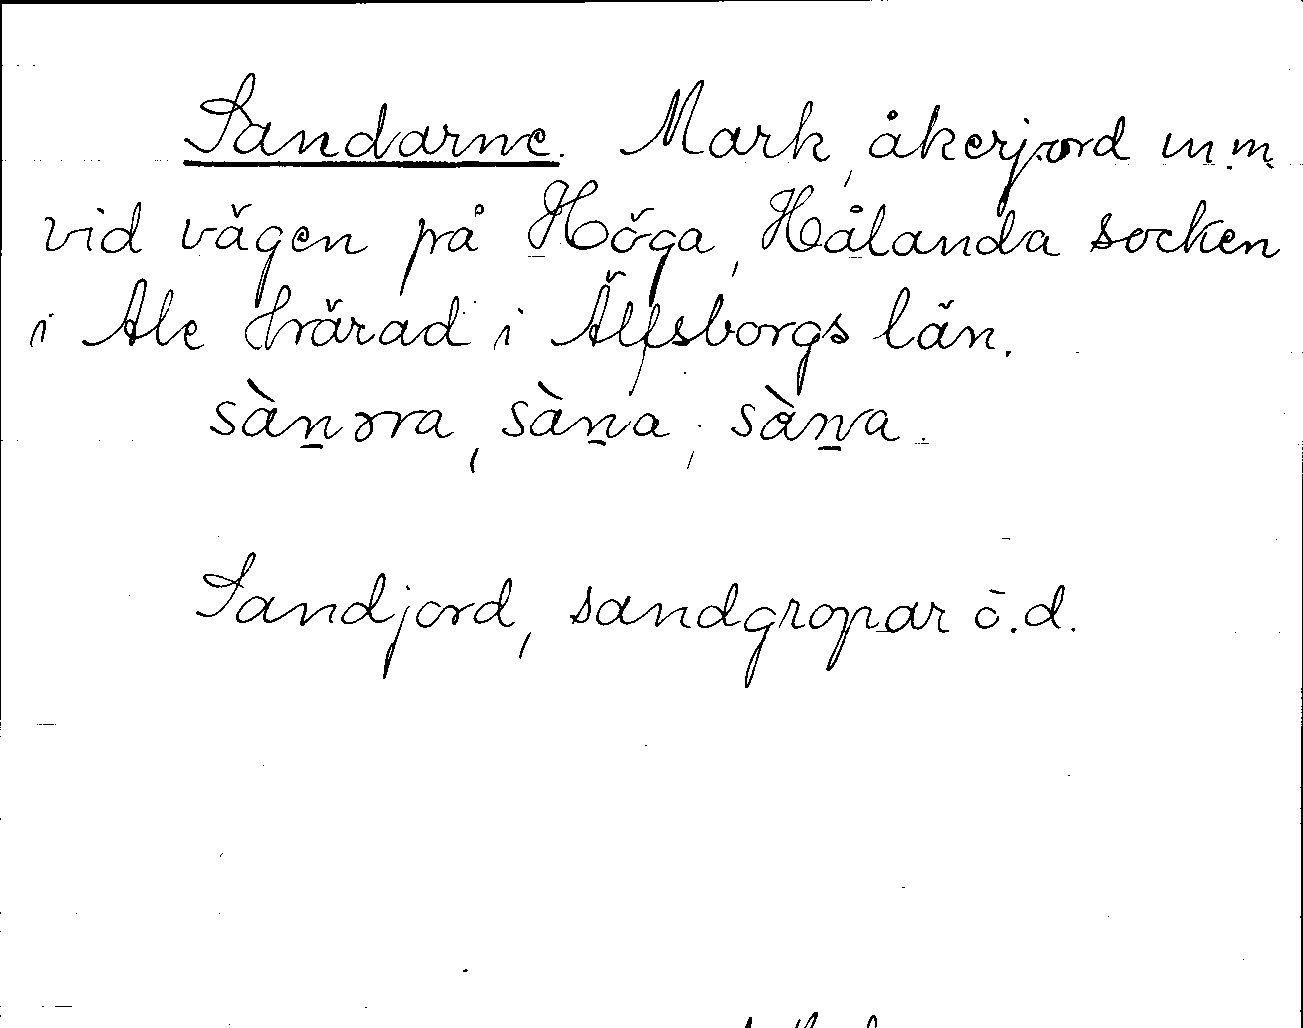 Sandarne. Mark, åkerjord m.m.
vid vägen på Höga, Hålanda socken
i Ale härad i Älfsborgs län.
sàn̠ɔra, sàn̠a, sàn̠a.
Sandjord, sandgropar o.d.